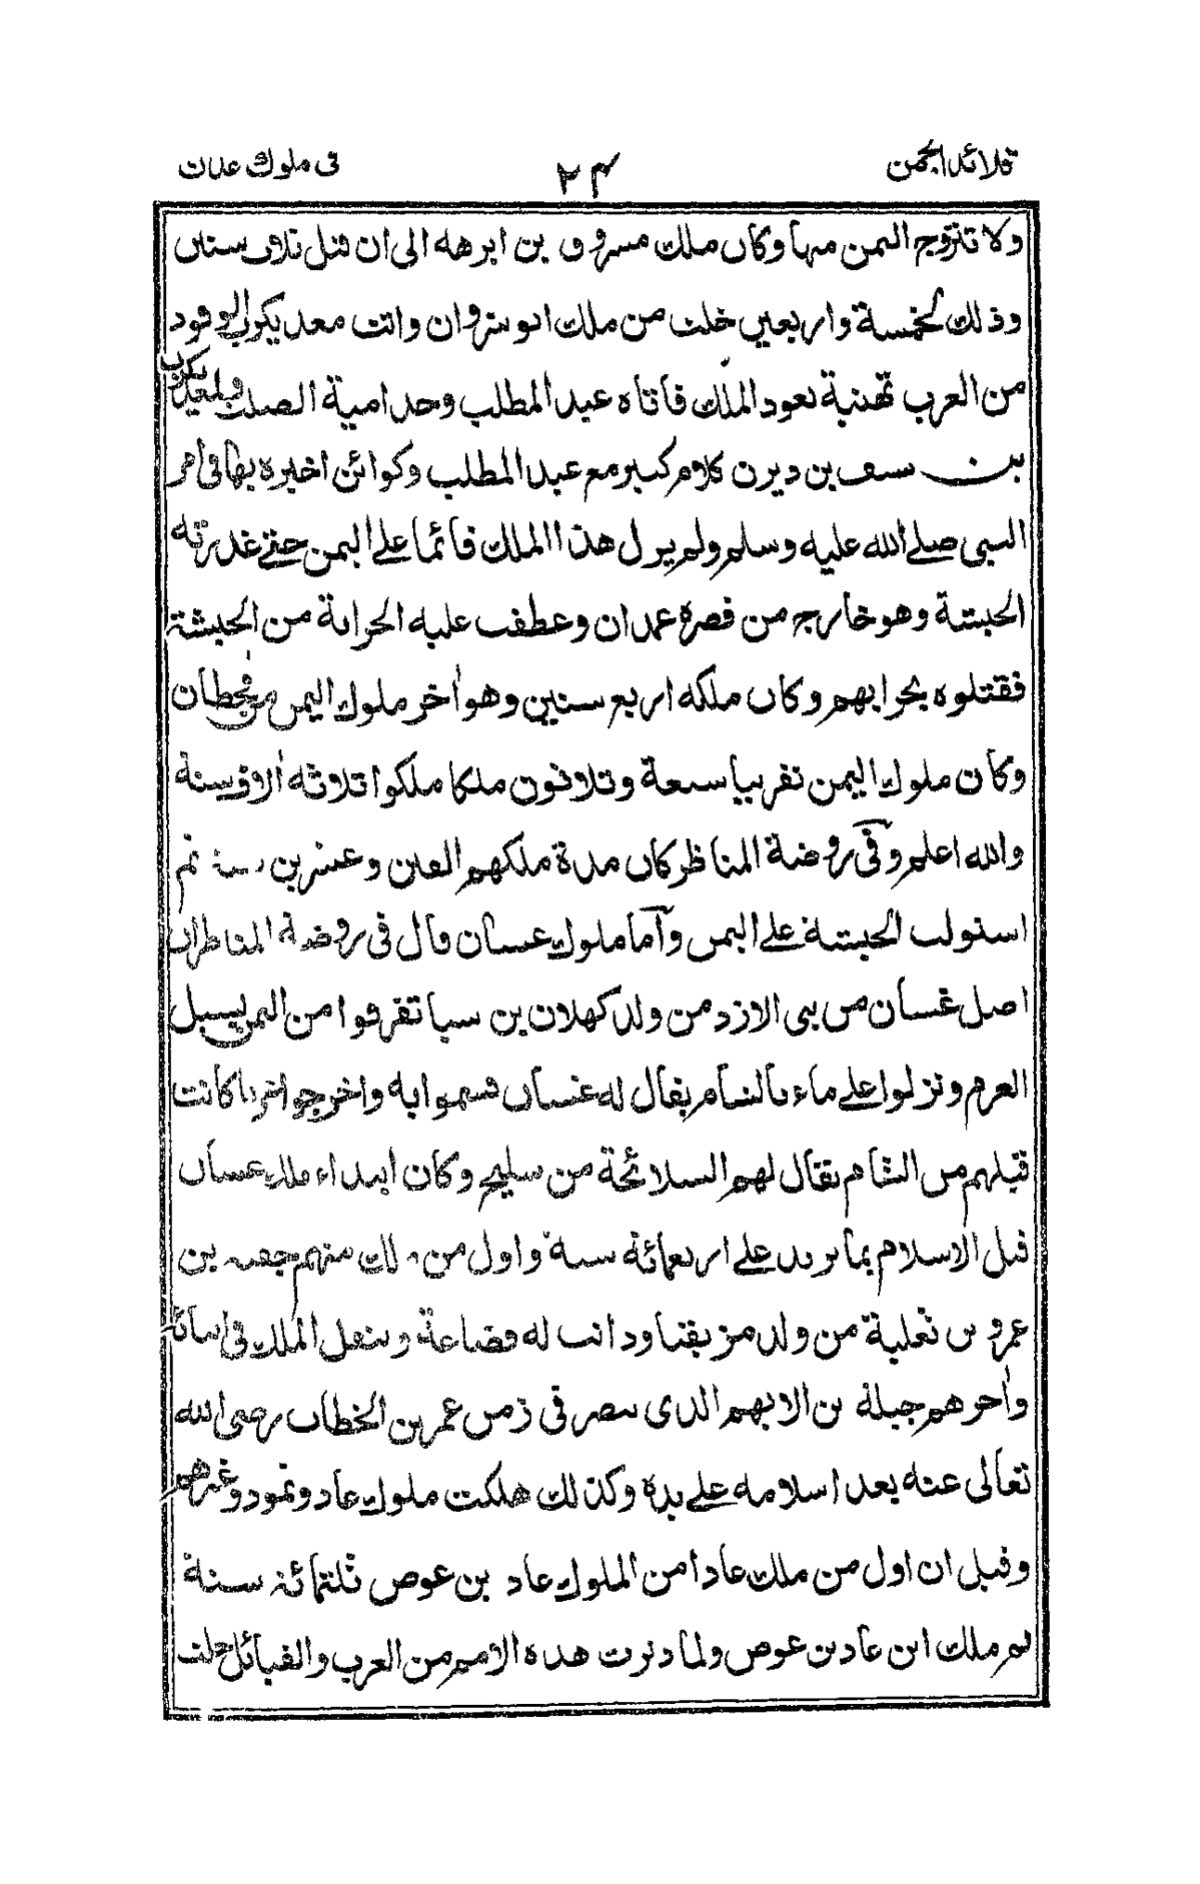 قلائد الجمن ٢٤ فى ملوك عدان
ولا تتزوج اليمن منها وكان ملك مسروق بن ابرهه الى ان قتل ثلاث سنين
وذلك لخمسة واربعين خلت من ملك انوشروان واتت معد يكرب الوفود
من العرب تهنية بعود الملك فاتاه عبد المطلب وجد امية الصلت ولمعديكرب
بن سيف بن ذيزن كلام كبير مع عبد المطلب وكوائن اخبره بها فى امر
النبى صلى الله عليه وسلم ولم يزل هذا الملك قائما على اليمن حتى غدرته
الحبشة وهو خارج من قصره غمدان وعطفت عليه الحرابة من الحبشة
فقتلوه بحرابهم وكان ملكه اربع سنين وهو اخر ملوك اليمن من قحطان
وكان ملوك اليمن تقريبا سبعة وثلاثون ملكا ملكوا ثلاثة الاف سنة
والله اعلم وفى روضة المناظر كان مدة ملكهم الفين وعشرين سنة ثم
استولت الحبشة على اليمن وآما ملوك غسان قال فى روضة المناظر ان
اصل غسان من بنى الازد من ولد كهلان بن سبا تفرقوا من اليمن بسيل
العرم ونزلوا على ماء بالشام يقال له غسان فسموا به واخرجوا عربا كانت
قبلهم من الشام يقال لهم السلائحة من سليح وكان ابتداء ملك غسان
قبل الاسلام بما يزيد على اربعمائة سنة واول من ملك منهم جفنه بن
عمرو بن ثعلبة من ولد مزيقنا ودانت له قضاعة وتنقل الملك فى ابنائه
واخرهم جبلة بن الابهم الذى تنصر فى زمن عمر بن الخطاب رضى الله
تعالى عنه بعد اسلامه على يده وكذلك هلكت ملوك عاد وثمود وغيرهم
وقيل ان اول من ملك عادا من الملوك عاد بن عوص ثلثمائة سنة
ثم ملك ابن عاد بن عوص ولما دثرت هذه الامم من العرب والقبائل خلت